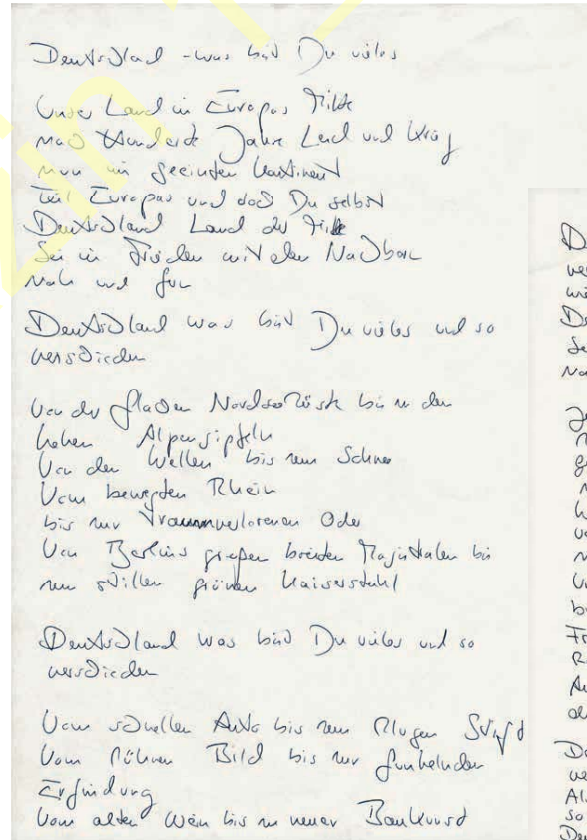 Deutschland - was bist Du vieles
Unser Land in Europas Mitte
nach Hunderte Jahre Leid und Krieg
nun im geeinten Kontinent
Teil Europas und doch Du selbst
Deutschland Land der Mitte
Sei in Frieden mit den Nachbarn
Nah und fern
Deutschland was bist Du vieles und so
verschieden
Von der flachen Nordseeküste bis zu den
hohen Alpengipfeln
Von den Wellen bis zum Schnee
Vom bewegten Rhein
bis zur traumverlorenen Oder
Von Berlins großen breiten Magistralen bis
zum stillen grünen Kaiserstuhl
Deutschland was bist Du vieles und so
verschieden
Vom schnellen Auto bis zum klugen Stift
Vom kühnen Bild bis zur funkelnden
Erfindung
Vom alten Wein bis zu neuer Baukunst